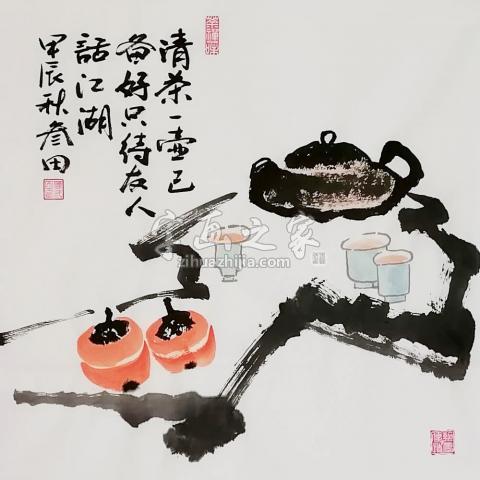 清茶一壶已
备好只待友人
話江湖
甲辰秋叁田
字画之家
zihuazhijia.com